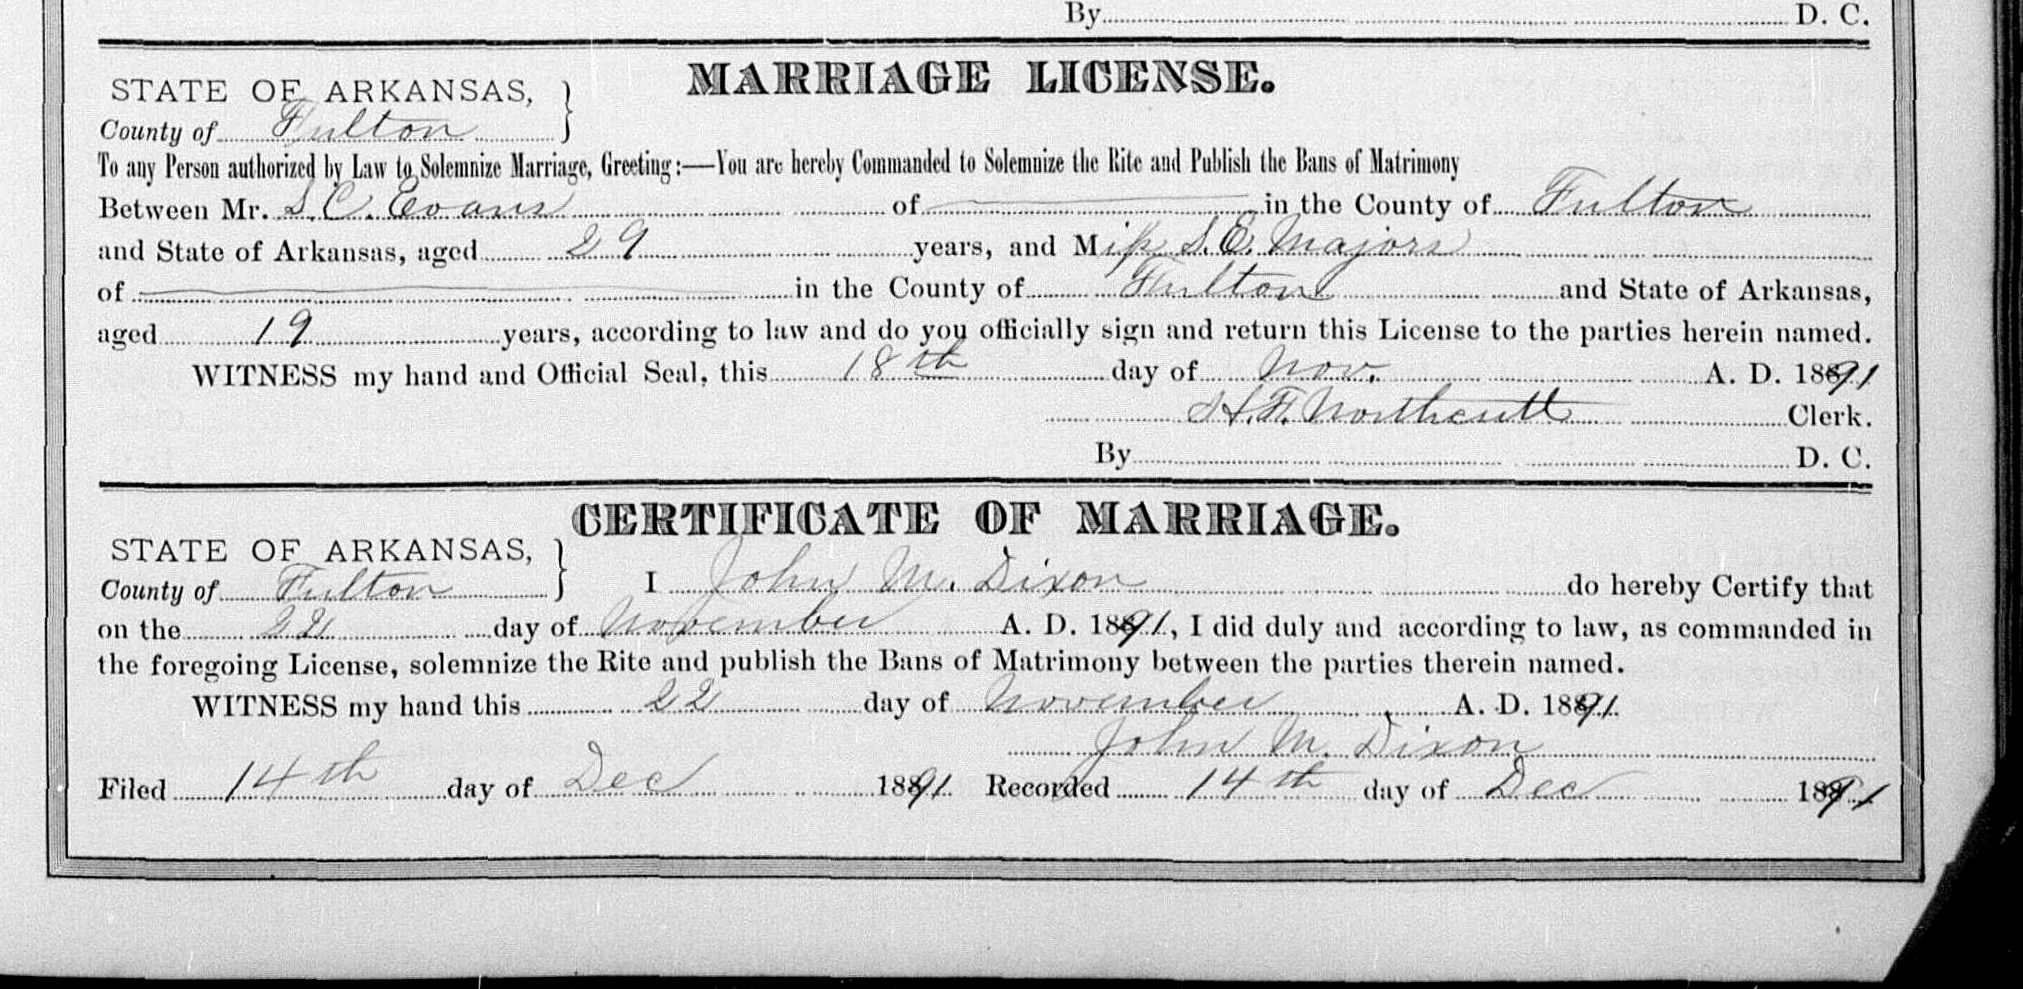 By D. C.
MARRIAGE LICENSE.
STATE OF ARKANSAS,
County of Fulton
To any Person authorized by Law to Solemnize Marriage, Greeting:—You are hereby Commanded to Solemnize the Rite and Publish the Bans of Matrimony
Between Mr. S. C. Evans of in the County of Fulton
and State of Arkansas, aged 29 years, and Miss S. E. Majors
of in the County of Fulton and State of Arkansas,
aged 19 years, according to law and do you officially sign and return this License to the parties herein named.
WITNESS my hand and Official Seal, this 18th day of Nov. A. D. 1891
H. F. Northcutt Clerk.
By D. C.
CERTIFICATE OF MARRIAGE.
STATE OF ARKANSAS,
County of Fulton I John M. Dixon do hereby Certify that
on the 22 day of November A. D. 1891, I did duly and according to law, as commanded in
the foregoing License, solemnize the Rite and publish the Bans of Matrimony between the parties therein named.
WITNESS my hand this 22 day of November A. D. 1891
John M. Dixon
Filed 14th day of Dec 1891 Recorded 14th day of Dec 1891